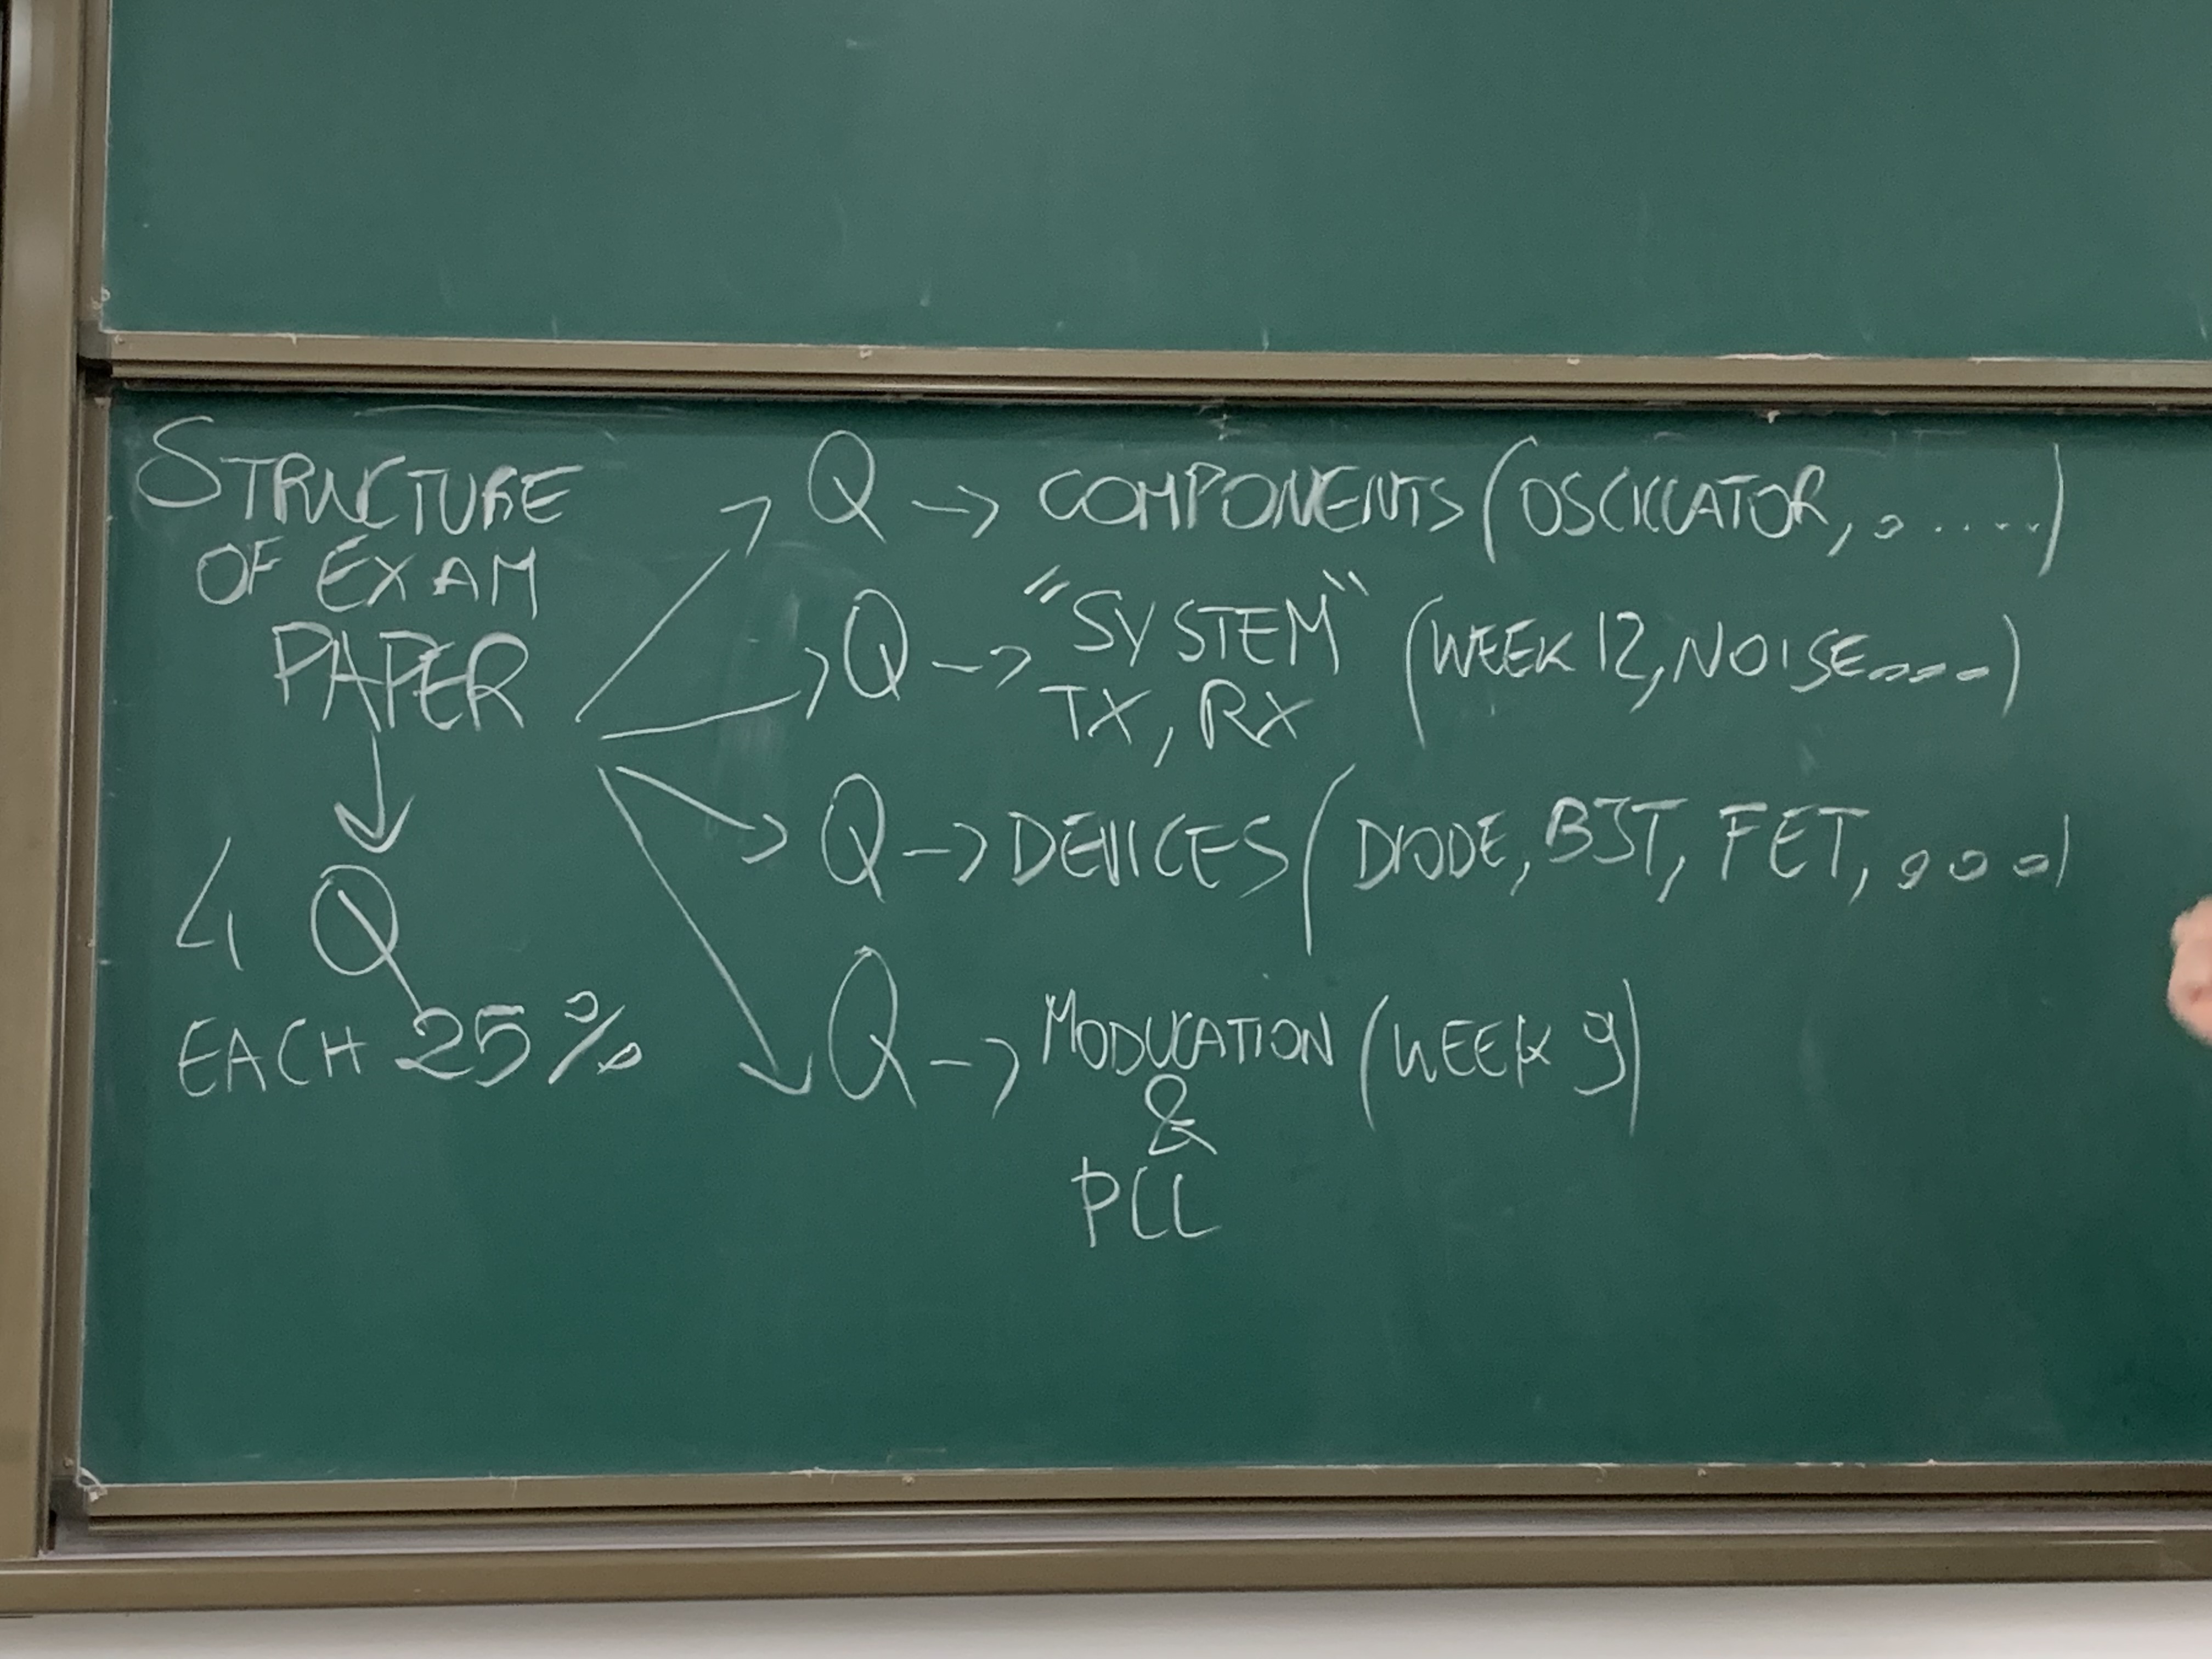 STRUCTURE
OF EXAM
PAPER
4 Q
EACH 25%
Q -> COMPONENTS (OSCILLATOR, ......)
Q -> "SYSTEM" (WEEK 12, NOISE....)
TX, RX
Q -> DEVICES (DIODE, BJT, FET, ...)
Q -> MODULATION (WEEK 9)
&
PLL